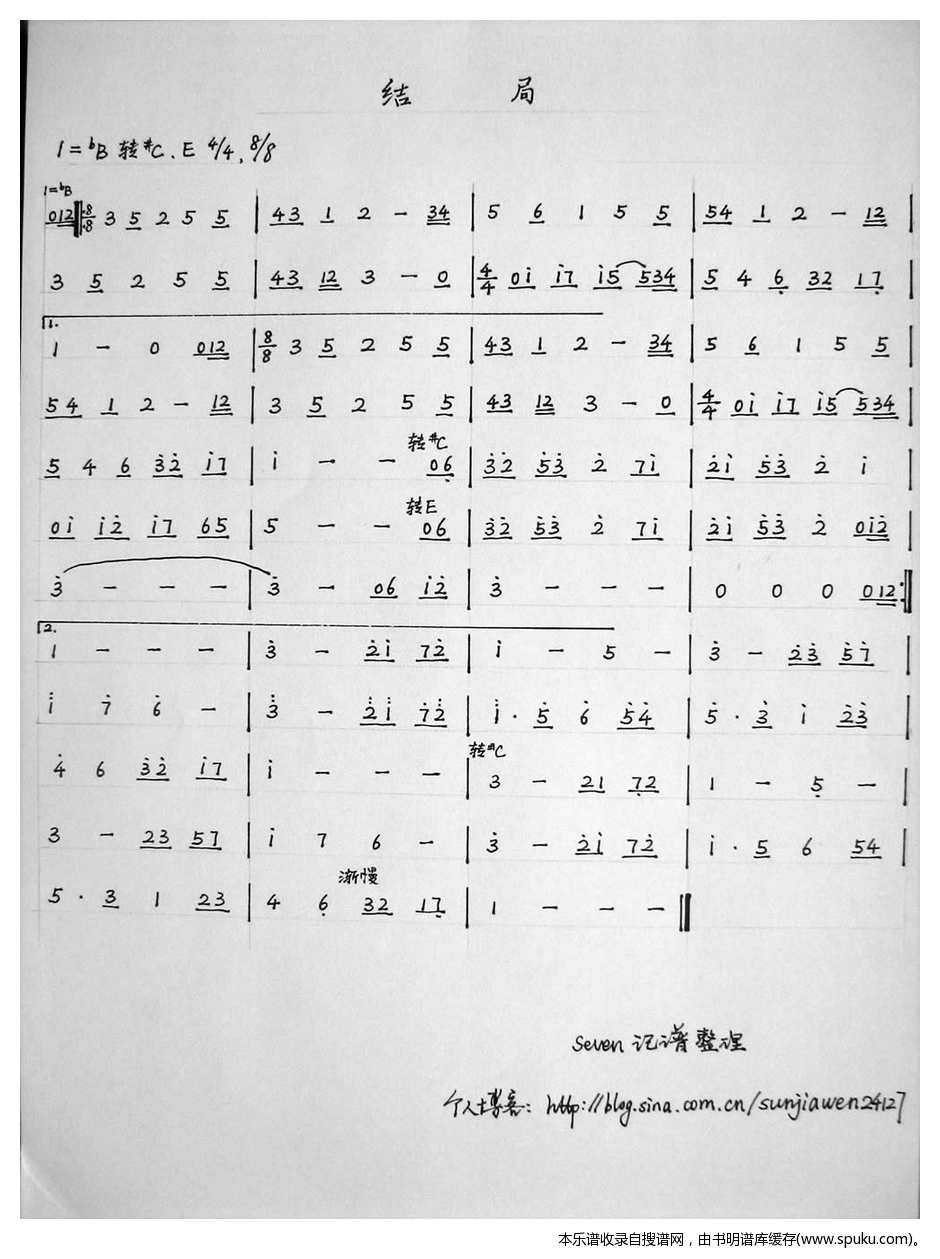 结 局
1=ᵇB 转#C、E 4/4, 8/8
1=ᵇB
012 8/8 3 5 2 5 5 | 43 1 2 - 34 | 5 6 1 5 5 | 54 1 2 - 12 |
3 5 2 5 5 | 43 12 3 - 0 | 4/4 0i i7 i5 534 | 5 4 6 32 17 |
1.
1 - 0 012 | 8/8 3 5 2 5 5 | 43 1 2 - 34 | 5 6 1 5 5 |
54 1 2 - 12 | 3 5 2 5 5 | 43 12 3 - 0 | 4/4 0i i7 i5 534 |
转#C
5 4 6 3̇2̇ i7 | i - - 06 | 3̇2̇ 5̇3̇ 2̇ 7i | 2̇i 5̇3̇ 2̇ i |
转E
0i i2̇ i7 65 | 5 - - 06 | 3̇2̇ 5̇3̇ 2̇ 7i | 2̇i 5̇3̇ 2̇ 0i2̇ |
3̇ - - - | 3̇ - 06 i2̇ | 3̇ - - - | 0 0 0 012 :||
2.
1 - - - | 3̇ - 2̇i 72̇ | i - 5 - | 3̇ - 2̇3̇ 5̇7̇ |
i 7̇ 6̇ - | 3̇ - 2̇i 7̇2̇ | i · 5̇ 6̇ 5̇4̇ | 5̇ · 3̇ i 2̇3̇ |
转#C
4̇ 6 3̇2̇ i7 | i - - - | 3 - 21 72 | 1 - 5 - |
3 - 23 57 | i 7 6 - | 3̇ - 2̇i 72̇ | i · 5 6 54 |
渐慢
5 · 3 1 23 | 4 6 32 17 | 1 - - - ||
Seven 记谱整理
个人博客: http://blog.sina.com.cn/sunjiawen24127
本乐谱收录自搜谱网，由书明谱库缓存(www.spuku.com)。